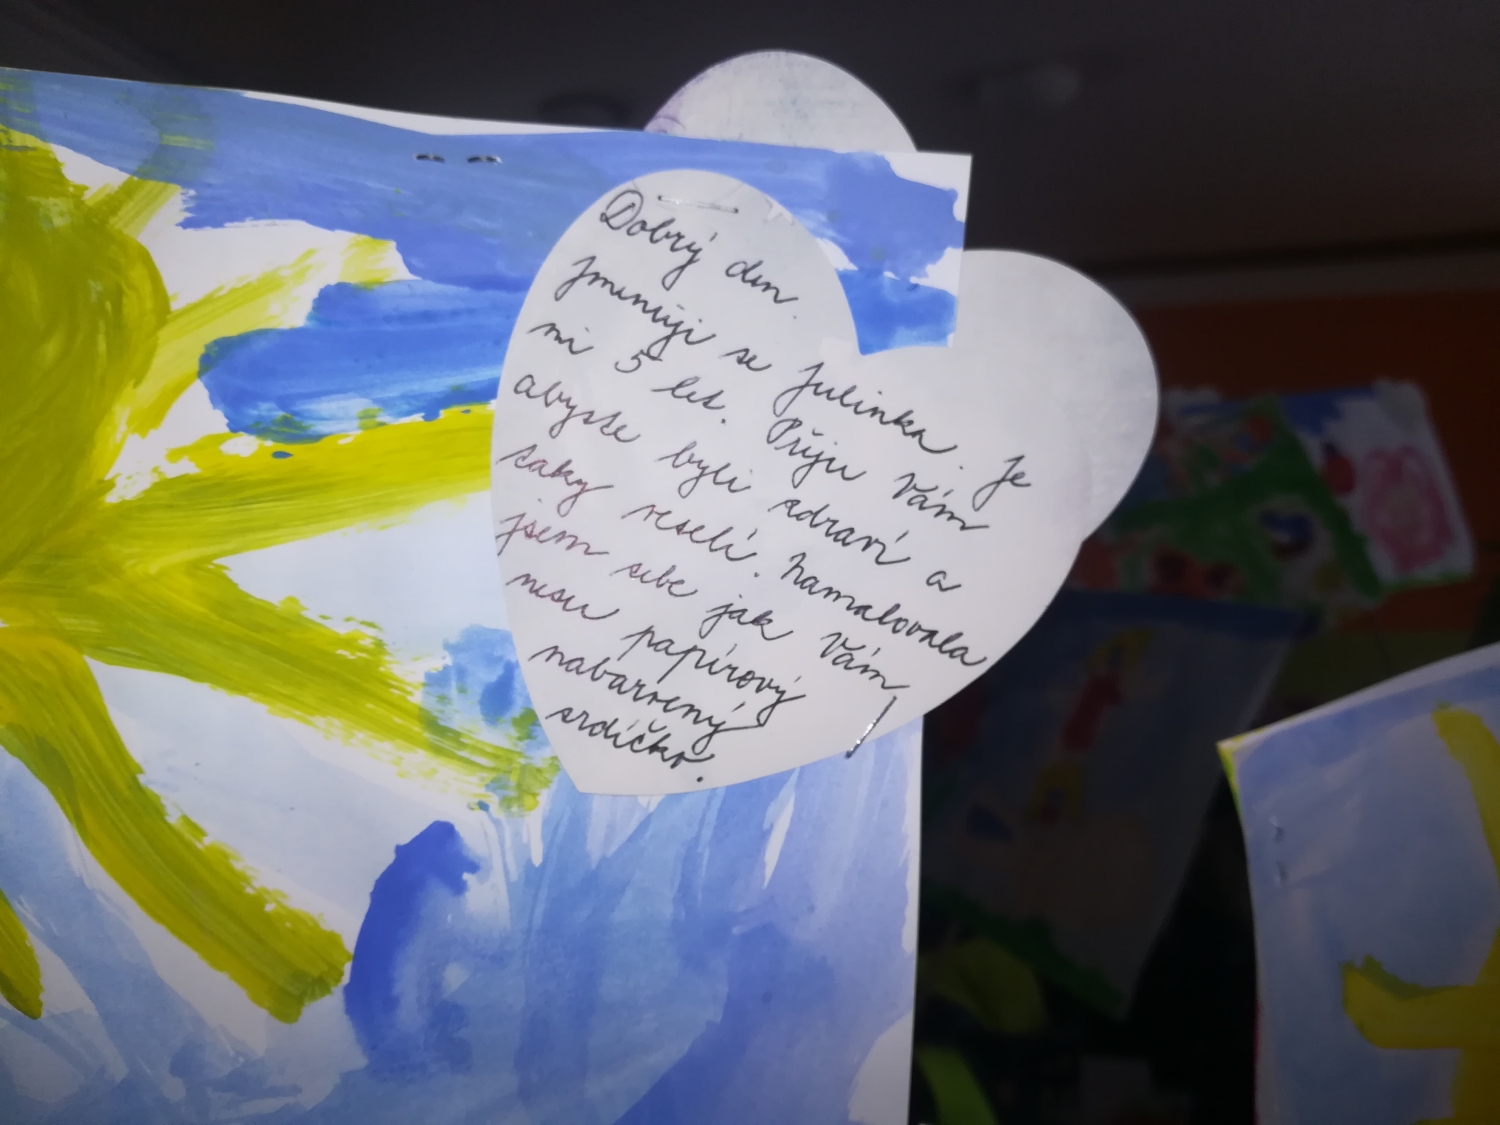 Dobrý den.
jmenuji se Julinka. Je
mi 5 let. Přeju Vám
abyste byli zdraví a
taky veselí. Namalovala
jsem sebe jak Vám
nesu papírový
nabarvený
srdíčko.